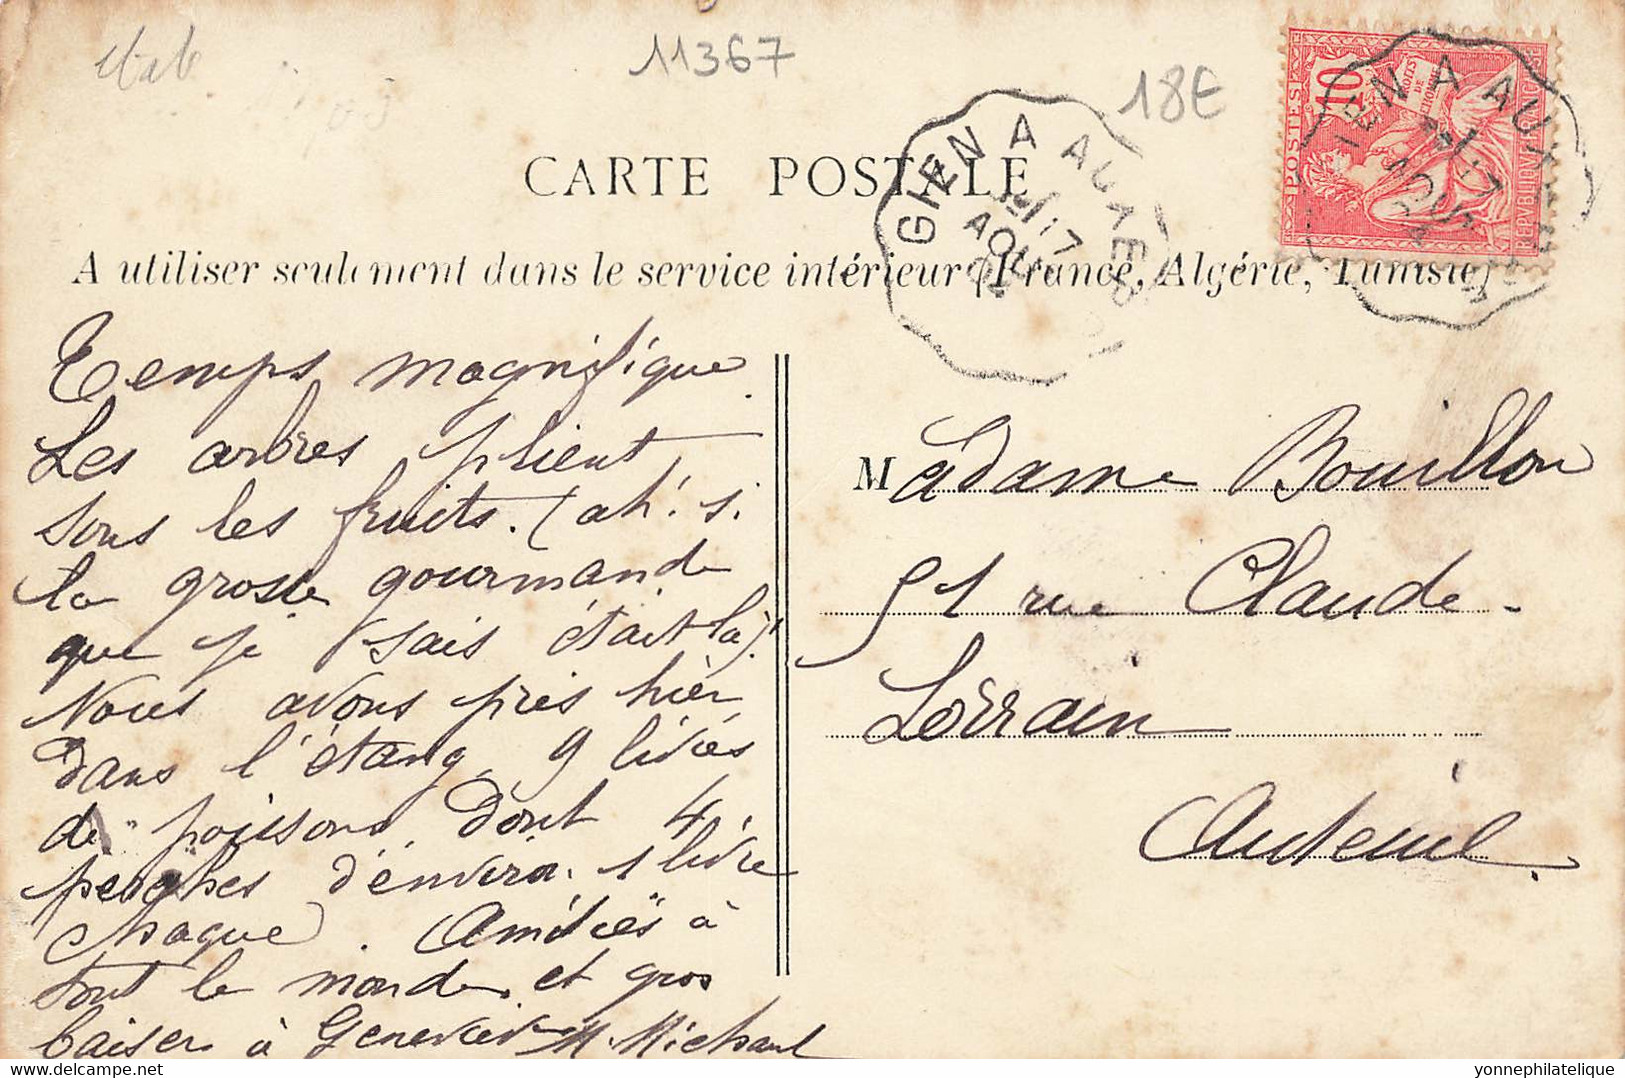 11367
18E
CARTE POSTALE
A utiliser seulement dans le service intérieur (France, Algérie, Tunisie)
GIEN A AUXERRE
17
AOUT
POSTES
10
DROITS DE L'HOMME
REPVBLIQVE FRANÇAISE
Temps magnifique.
Les arbres plient
sous les fruits. (ah! si
la grosse gourmande
que je sais était là)!
Nous avons pris hier
dans l'étang 9 livres
de poissons dont 4
perches d'environ 1 livre
chaque. Amitiés à
tout le monde et gros
baiser à Geneviève M. Michaut
Madame Bouillon
51 rue Claude-
Lorrain
Auteuil.
Delcampe.net
yonnephilatelique